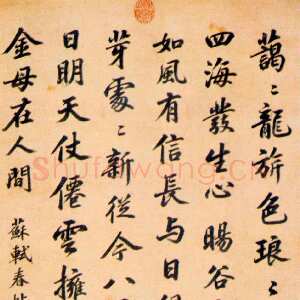 藹〻龍旂色琅〻
四海發生心暘谷
如風有信長与日
芽處〻新從今八
日明天仗僊雲擁
金母在人間 蘇軾春
Shufawang.cn